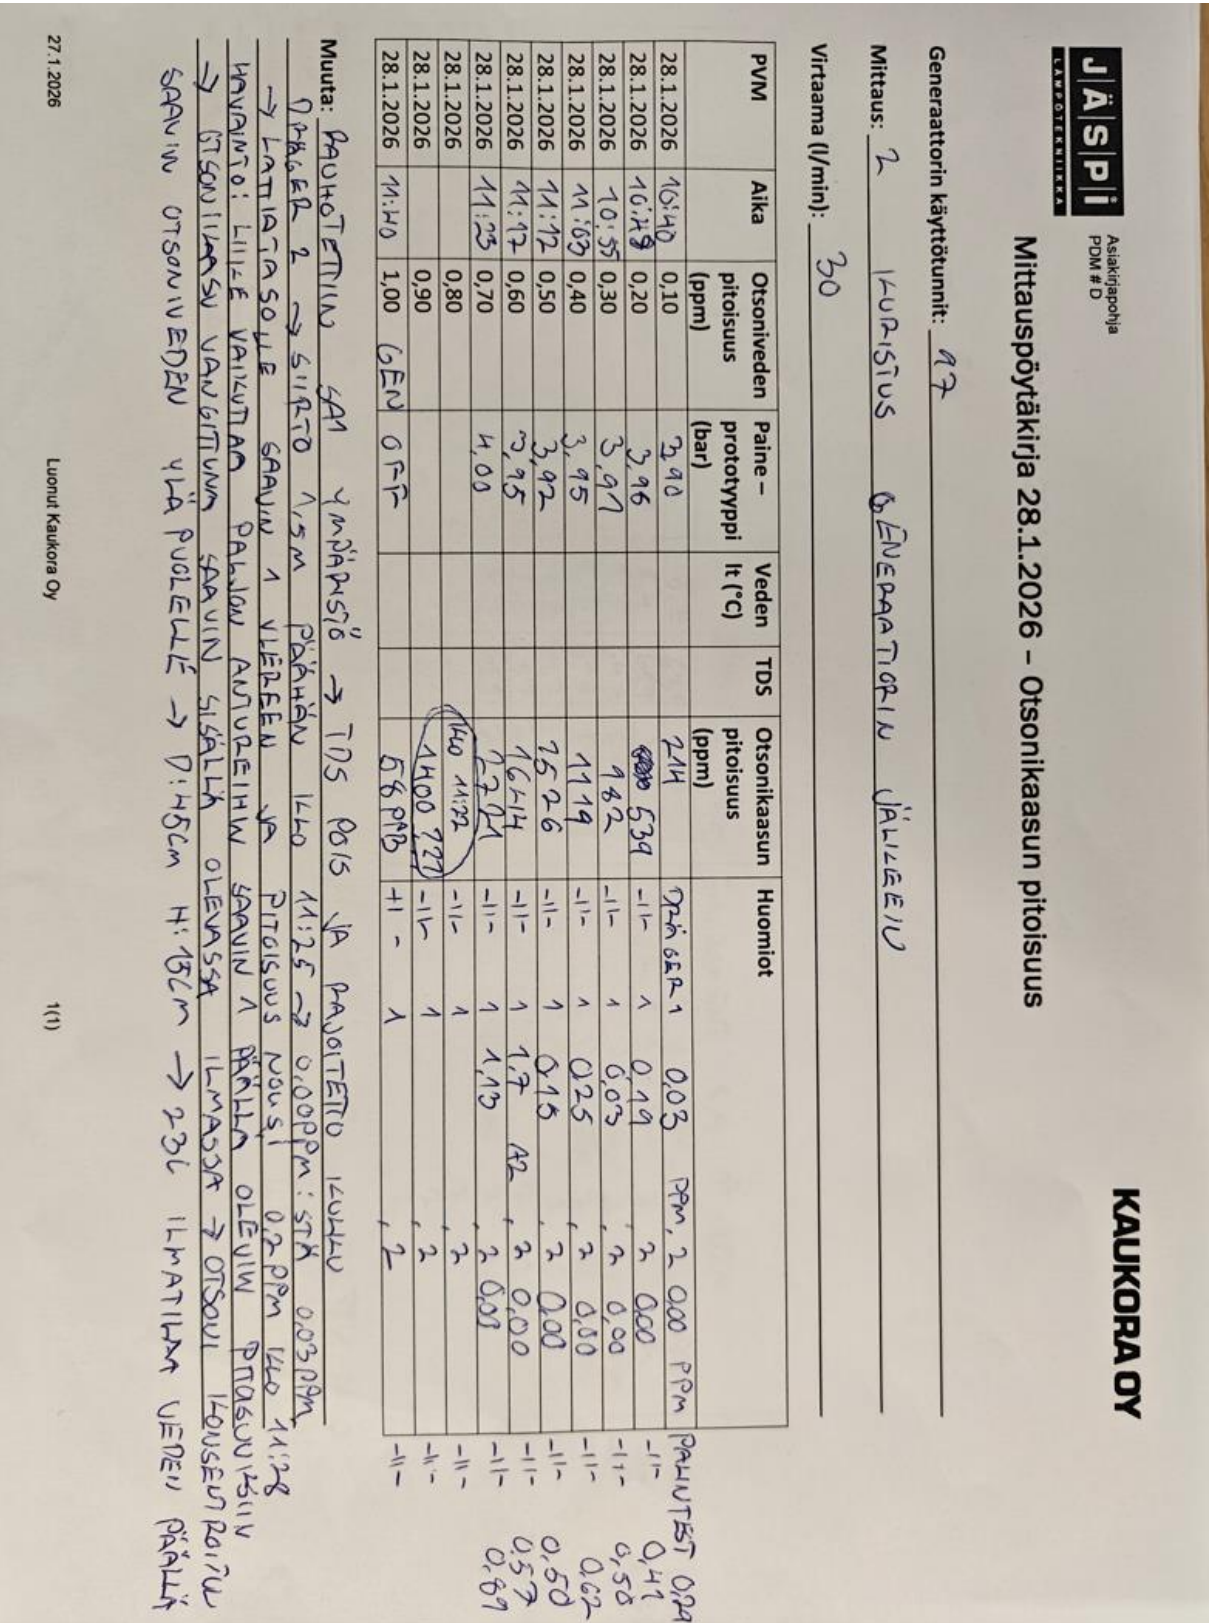 JÄSPI
LÄMPÖTEKNIIKKA
Asiakirjapohja
PDM # D
KAUKORA OY
Mittauspöytäkirja 28.1.2026 – Otsonikaasun pitoisuus
Generaattorin käyttötunnit: 97
Mittaus: 2 KURISTUS GENERAATTORIN JÄLKEEN
Virtaama (l/min): 30
PVM Aika Otsoniveden pitoisuus (ppm) Paine – prototyyppi (bar) Veden lt (°C) TDS Otsonikaasun pitoisuus (ppm) Huomiot
28.1.2026 10:40 0,10 3,90 214 DRÄGER 1 0,03 PPM, 2 0,00 PPM PALINTEST 0,29
28.1.2026 10:48 0,20 3,96 539 -11- 1 0,19 2 0,00 -11- 0,41
28.1.2026 10:55 0,30 3,91 982 -11- 1 0,03 , 2 0,00 -11- 0,50
28.1.2026 11:03 0,40 3,95 1119 -11- 1 0,25 , 2 0,00 -11- 0,62
28.1.2026 11:12 0,50 3,92 1526 -11- 1 0,15 , 2 0,00 -11- 0,50
28.1.2026 11:17 0,60 3,95 1644 -11- 1 1,7 A2 , 2 0,00 -11- 0,57
28.1.2026 11:23 0,70 4,00 2721 -11- 1 1,13 , 2 0,03 -11- 0,89
28.1.2026 0,80 klo 11:22 -11- 1 , 2 -11-
28.1.2026 0,90 1400 ??? -11- 1 , 2 -11-
28.1.2026 11:40 1,00 GEN OFF 58 PPB -11- 1 , 2 -11-
Muuta: RAUHOTETTIIN SAA YMPÄRISTÖ → TDS POIS JA RAJOITETTO KULKU
DRÄGER 2 → SIIRTO 1,5M PÄÄHÄN KLO 11:25 → 0,00PPM: STÄ 0,03PPM
→ LATTIATASOLLE SAAVIN 1 VIEREEN JA PITOISUUS NOUSI 0,2 PPM KLO 11:28
HAVAINTO: LIIKE VAIKUTTAA PALJON ANTUREIHIN SAAVIN 1 PÄÄLLÄ OLEVIIN PITOISUUKSIIN
→ OTSONIKAASU VANGITTUNA SAAVIN SISÄLLÄ OLEVASSA ILMASSA → OTSONI KONSENTROITUU
SAAVIN OTSONIVEDEN YLÄPUOLELLE → D:45CM H:15CM → 23L ILMATILAA VEDEN PÄÄLLÄ
27.1.2026
Luonut Kaukora Oy
1(1)